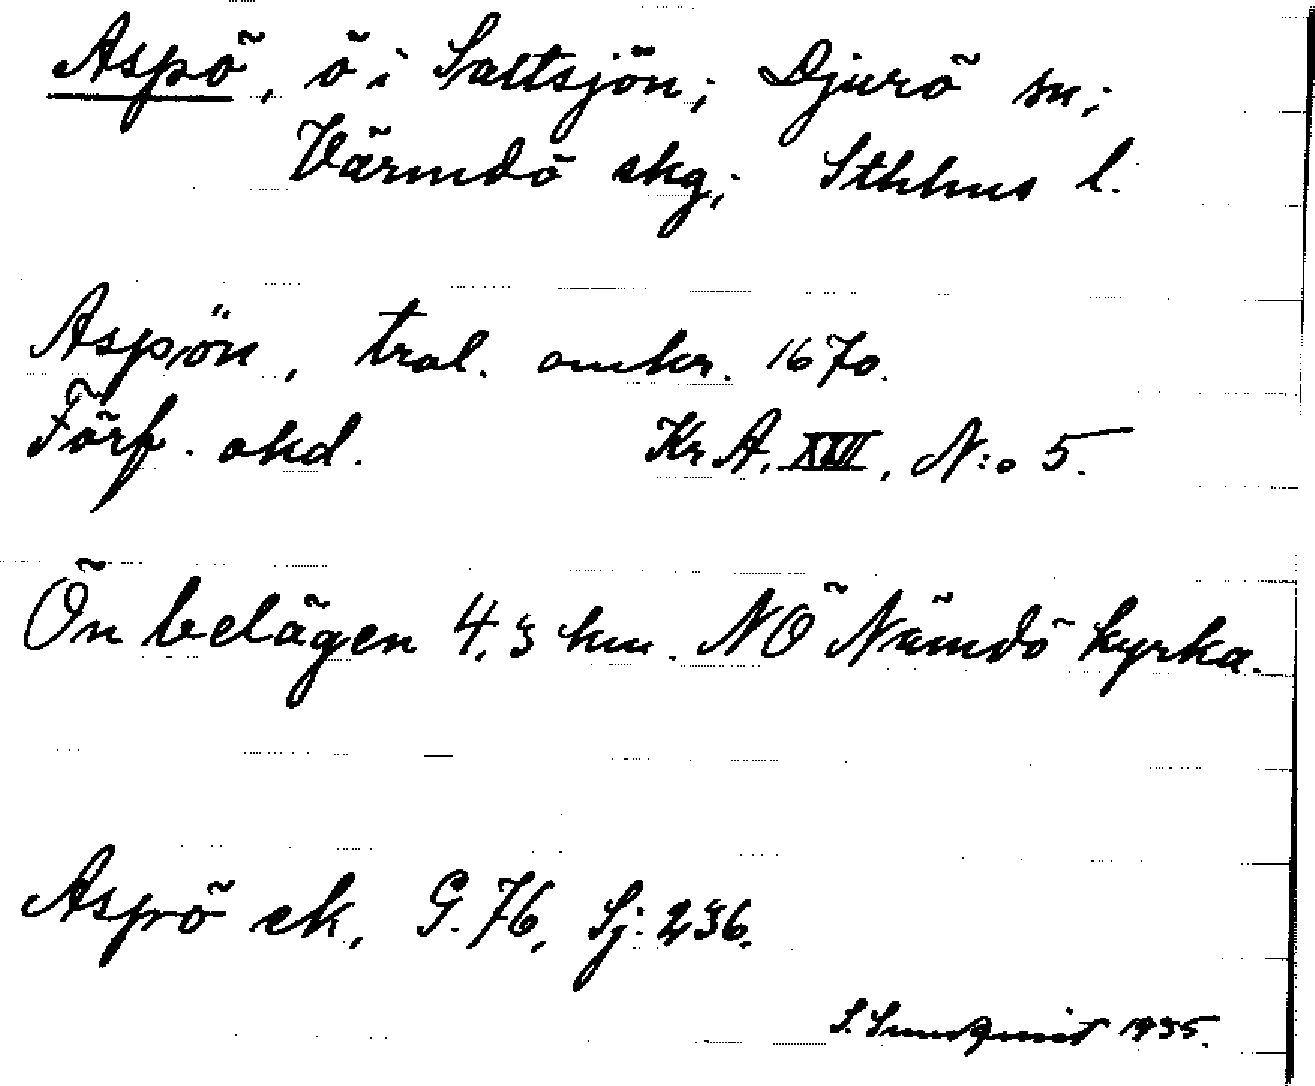 Aspö, ö i Saltsjön; Djurö sn;
Värmdö skg; Sthlms l.
Aspön, tral. omkr. 1670.
Förf. okd. Kr A. XXVI, N:o 5.
Ön belägen 4,3 km. NÖ Nämdö kyrka.
Aspö ek. G. 76, Sj: 236.
S. Sundqvist 1935.